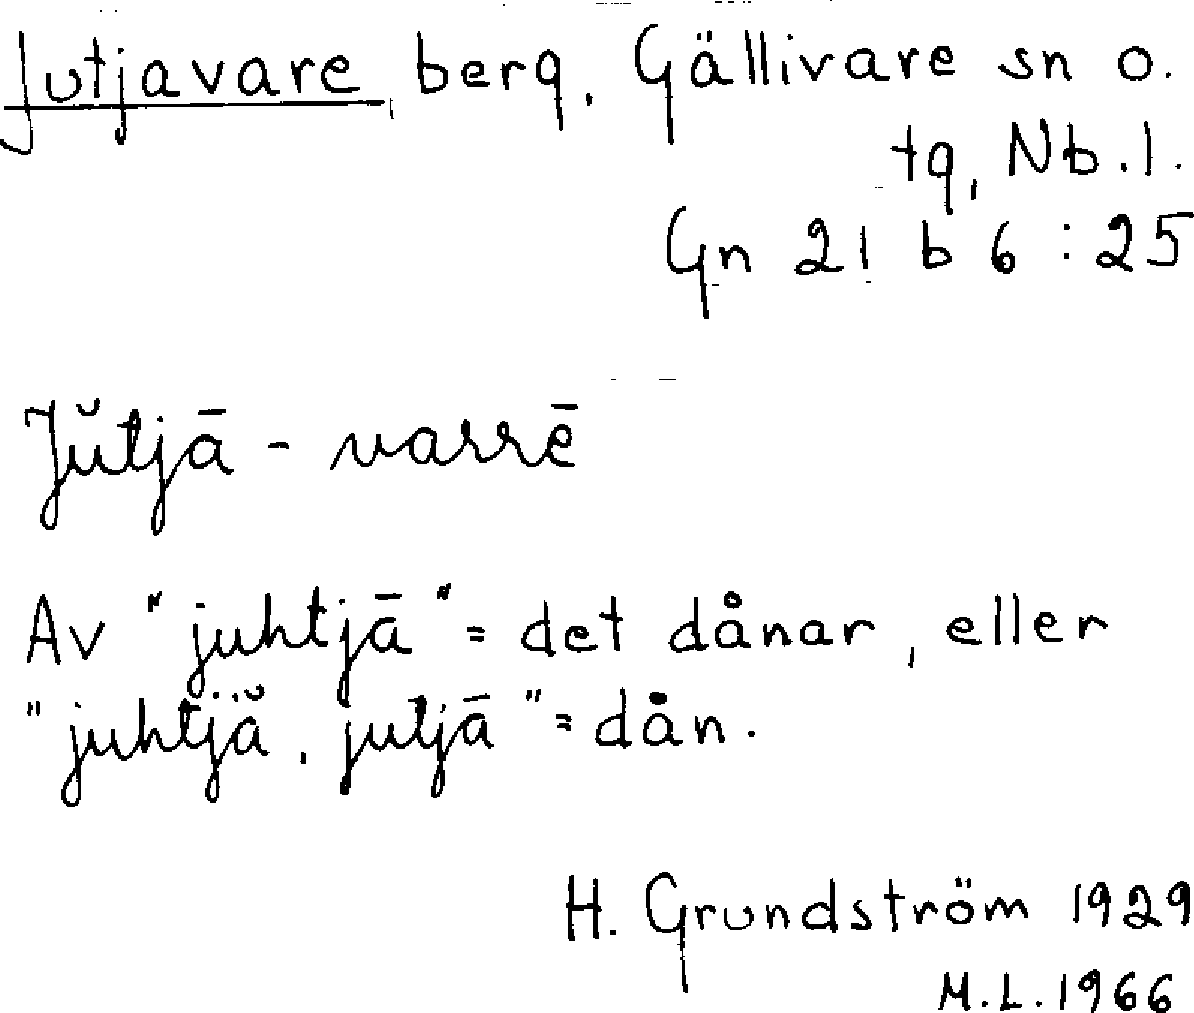 Jutjavare, berg, Gällivare sn o.
tg, Nb. l.
Gn 21 b 6 : 25
Jŭtjā - varrē
Av "juhtjā" = det dånar, eller
"juhtjă, jutjā" = dån.
H. Grundström 1929
M.L. 1966